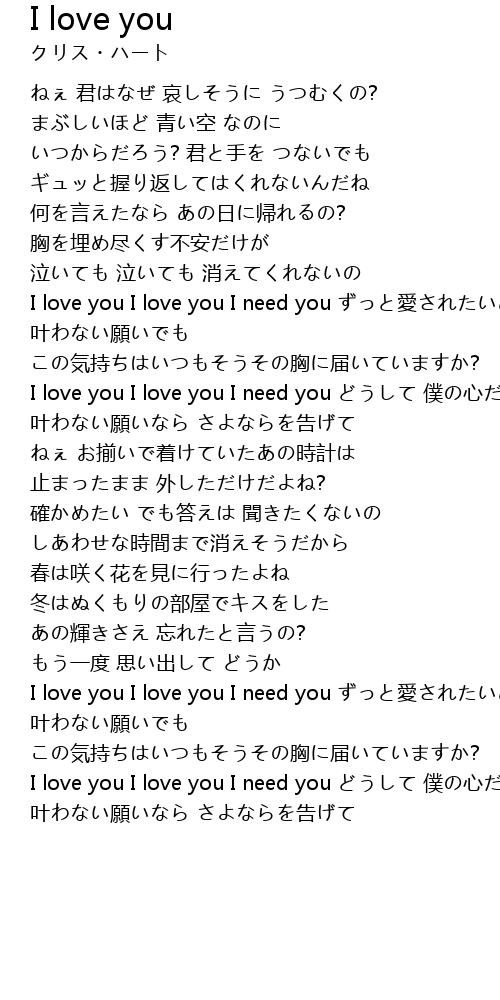 I love you
クリス・ハート
ねぇ 君はなぜ 哀しそうに うつむくの?
まぶしいほど 青い空 なのに
いつからだろう? 君と手を つないでも
ギュッと握り返してはくれないんだね
何を言えたなら あの日に帰れるの?
胸を埋め尽くす不安だけが
泣いても 泣いても 消えてくれないの
I love you I love you I need you ずっと愛されたい
叶わない願いでも
この気持ちはいつもそうその胸に届いていますか?
I love you I love you I need you どうして 僕の心だ
叶わない願いなら さよならを告げて
ねぇ お揃いで着けていたあの時計は
止まったまま 外しただけだよね?
確かめたい でも答えは 聞きたくないの
しあわせな時間まで消えそうだから
春は咲く花を見に行ったよね
冬はぬくもりの部屋でキスをした
あの輝きさえ 忘れたと言うの?
もう一度 思い出して どうか
I love you I love you I need you ずっと愛されたい
叶わない願いでも
この気持ちはいつもそうその胸に届いていますか?
I love you I love you I need you どうして 僕の心だ
叶わない願いなら さよならを告げて